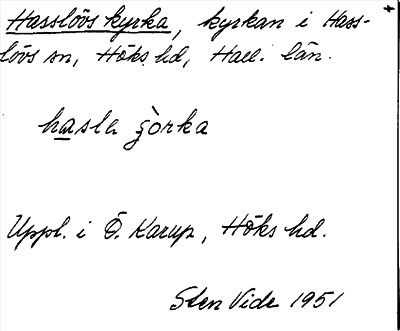 Hasslövs kyrka, kyrkan i Hass-
lövs sn, Höks hd, Hall. län.
Uppl. i Ö. Karup, Höks hd.
Sten Vide 1951